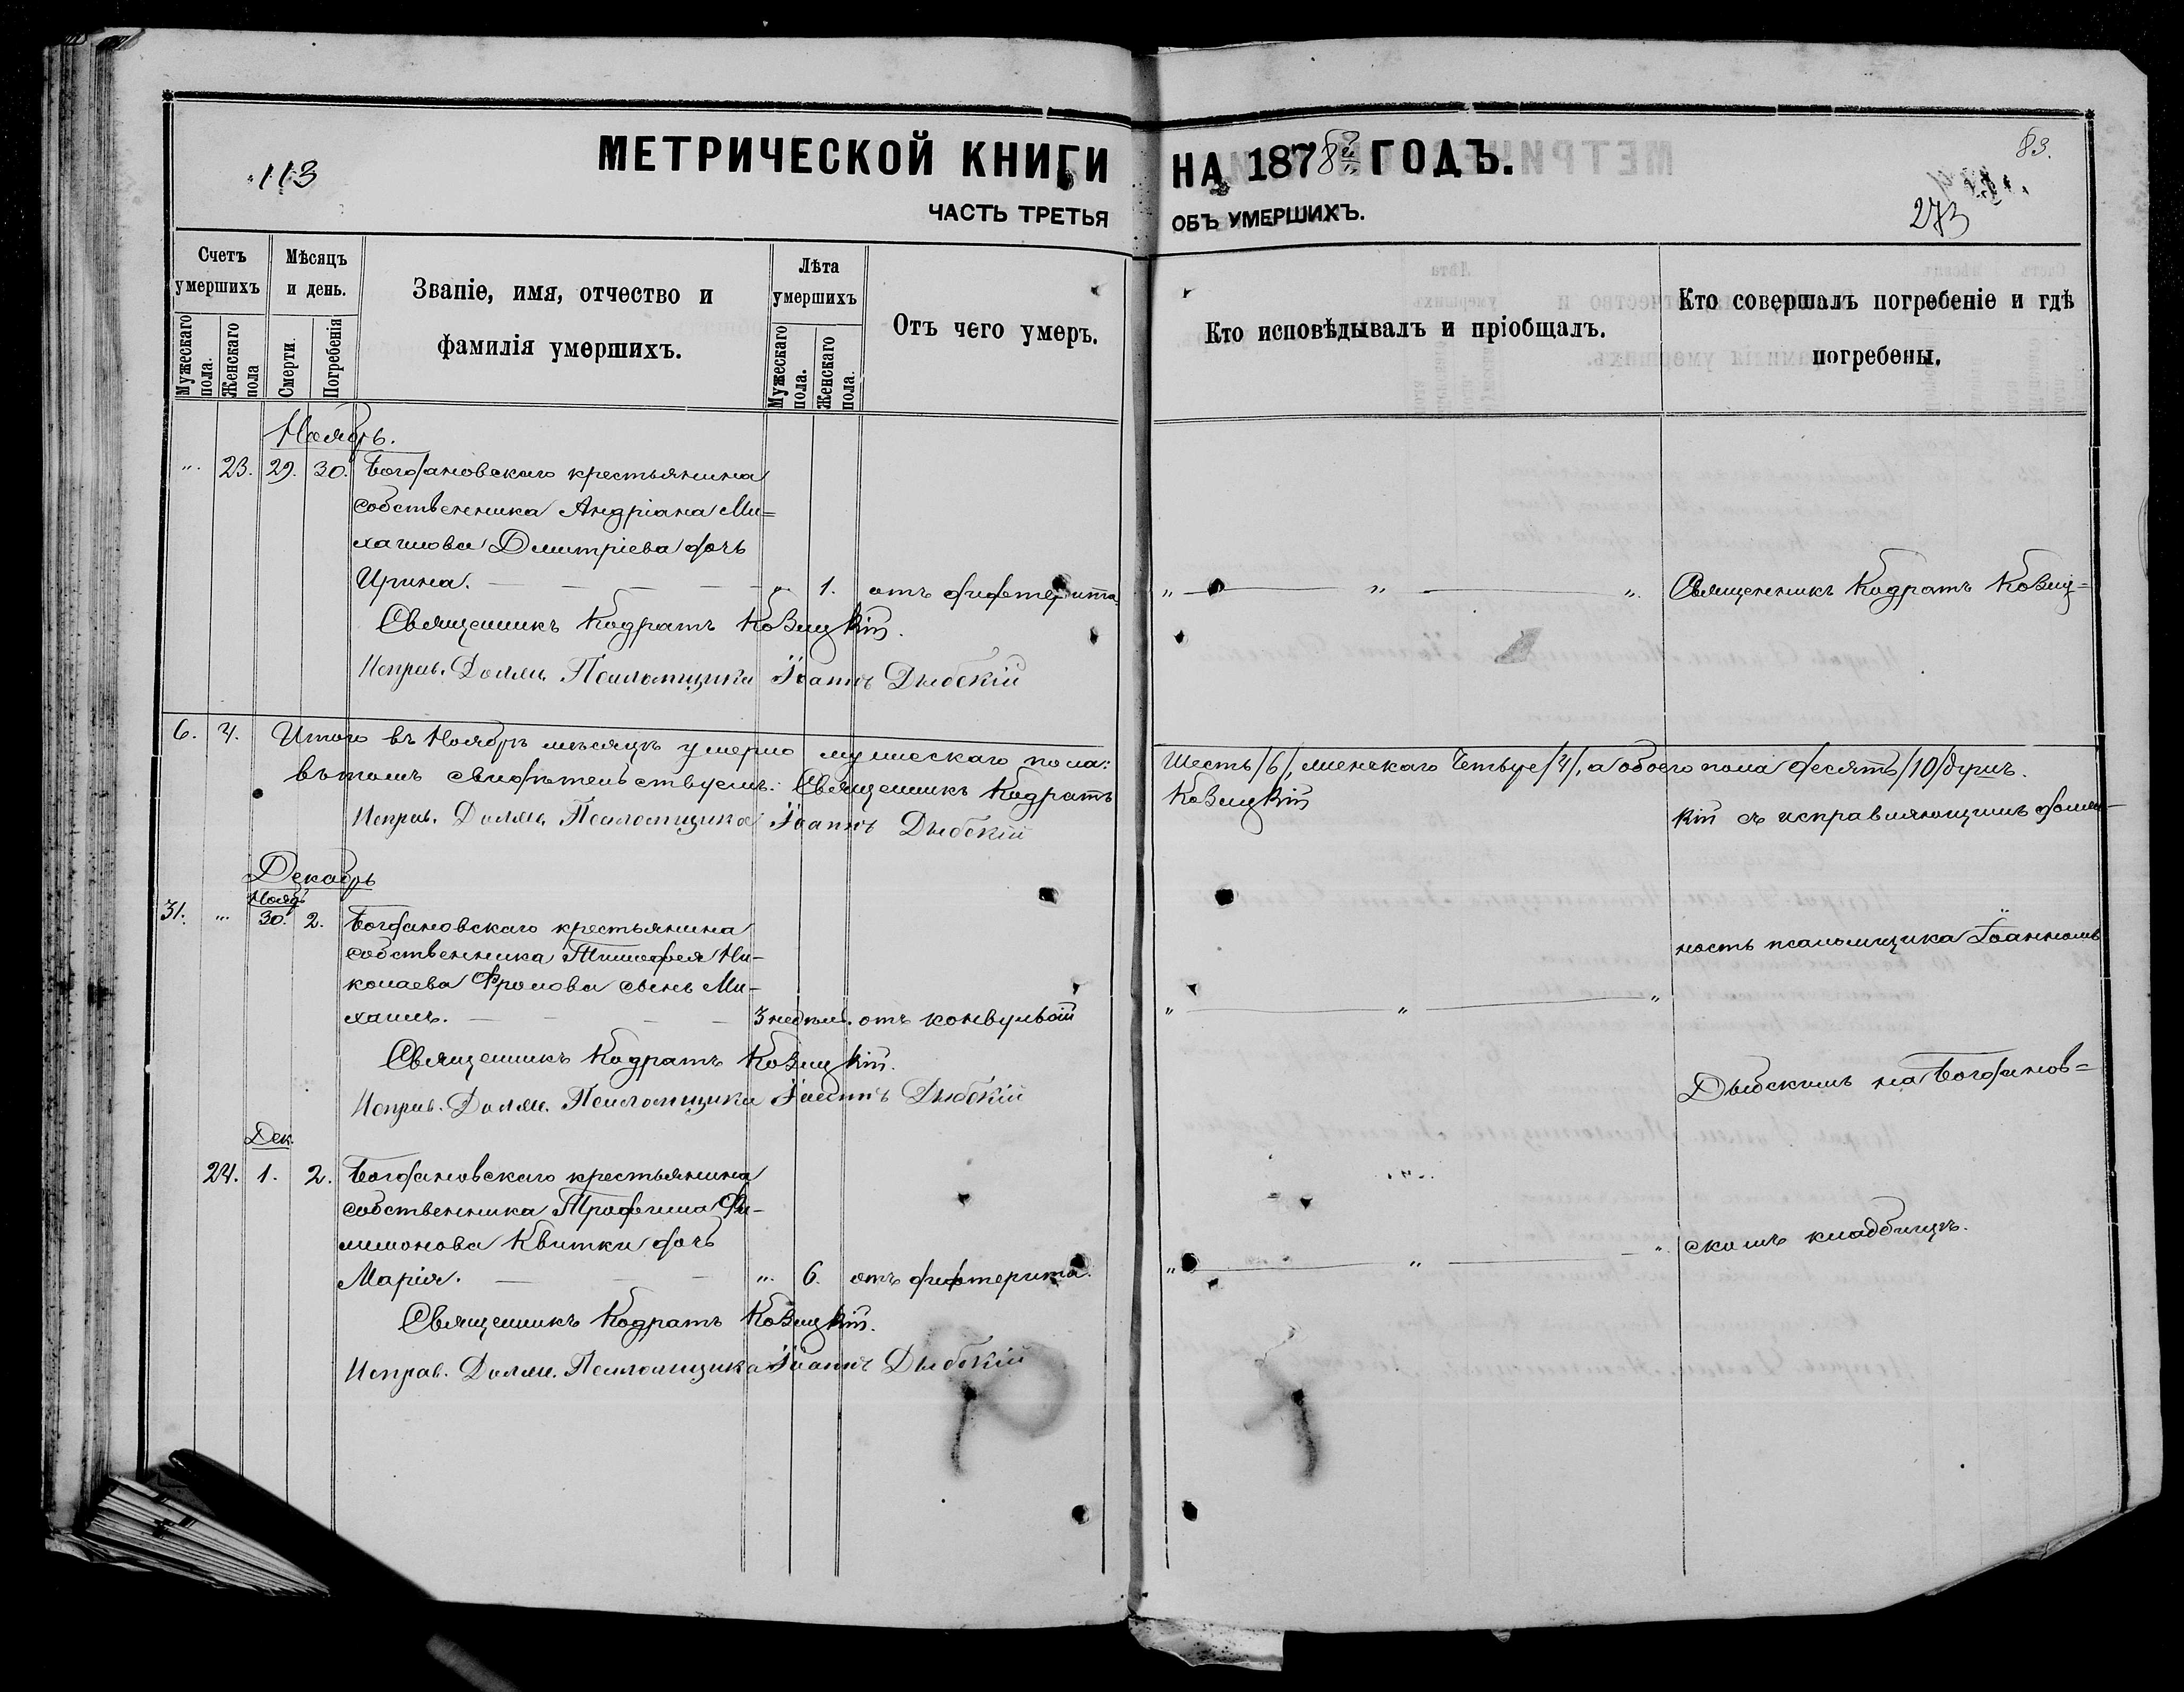 МЕТРИЧЕСКОЙ КНИГИ НА 1878й ГОДЪ.
113
83.
273
ЧАСТЬ ТРЕТЬЯ ОБЪ УМЕРШИХЪ.
Счетъ умершихъ
Мужескаго пола.
Женскаго пола
Мѣсяцъ и день.
Смерти.
Погребенія
Званіе, имя, отчество и
фамилія умершихъ.
Лѣта умершихъ
Мужескаго пола.
Женскаго пола.
Отъ чего умеръ.
Кто исповѣдывалъ и пріобщалъ.
Кто совершалъ погребеніе и гдѣ
погребены.
Ноябрь.
". 23. 29. 30. Богдановскаго крестьянина
собственника Андріана Ми=
хаилова Дмитріева дочь
Ирина. — — — — " 1. отъ дифтерита " — " — ". Священникъ Кодратъ Козиц=
Священникъ Кодратъ Козицкій.
Исправ. Должн. Псаломщика Іоаннъ Дыбскій
6. 4. Итого въ Ноябрѣ мѣсяцѣ умерло мужескаго пола: Шесть /6/, женскаго Четыре /4/, а обоего пола десять /10/ душъ.
въ томъ свидѣтельствуемъ: Священникъ Кодратъ Козицкій
Исправ. Должн. Псаломщика Іоаннъ Дыбскій
кій съ исправляющимъ долж—
Декабрь
Нояб.
31. " 30. 2. Богдановскаго крестьянина
собственника Тимофея Ни—
колаева Фролова сынъ Ми—
хаилъ. — — — — 3 недѣл. отъ конвульсій " — " — "
ность псаломщика Іоанномъ
Священникъ Кодратъ Козицкій.
Исправ. Должн. Псаломщика Іоаннъ Дыбскій
Дыбскимъ на Богданов=
Дек.
24. 1. 2. Богдановскаго крестьянина
собственника Трофима Фи—
лимонова Квитки дочь
Марія. — — — ". 6. отъ дифтерита. " — " — ".
скомъ кладбищѣ.
Священникъ Кодратъ Козицкій.
Исправ. Должн. Псаломщика Іоаннъ Дыбскій